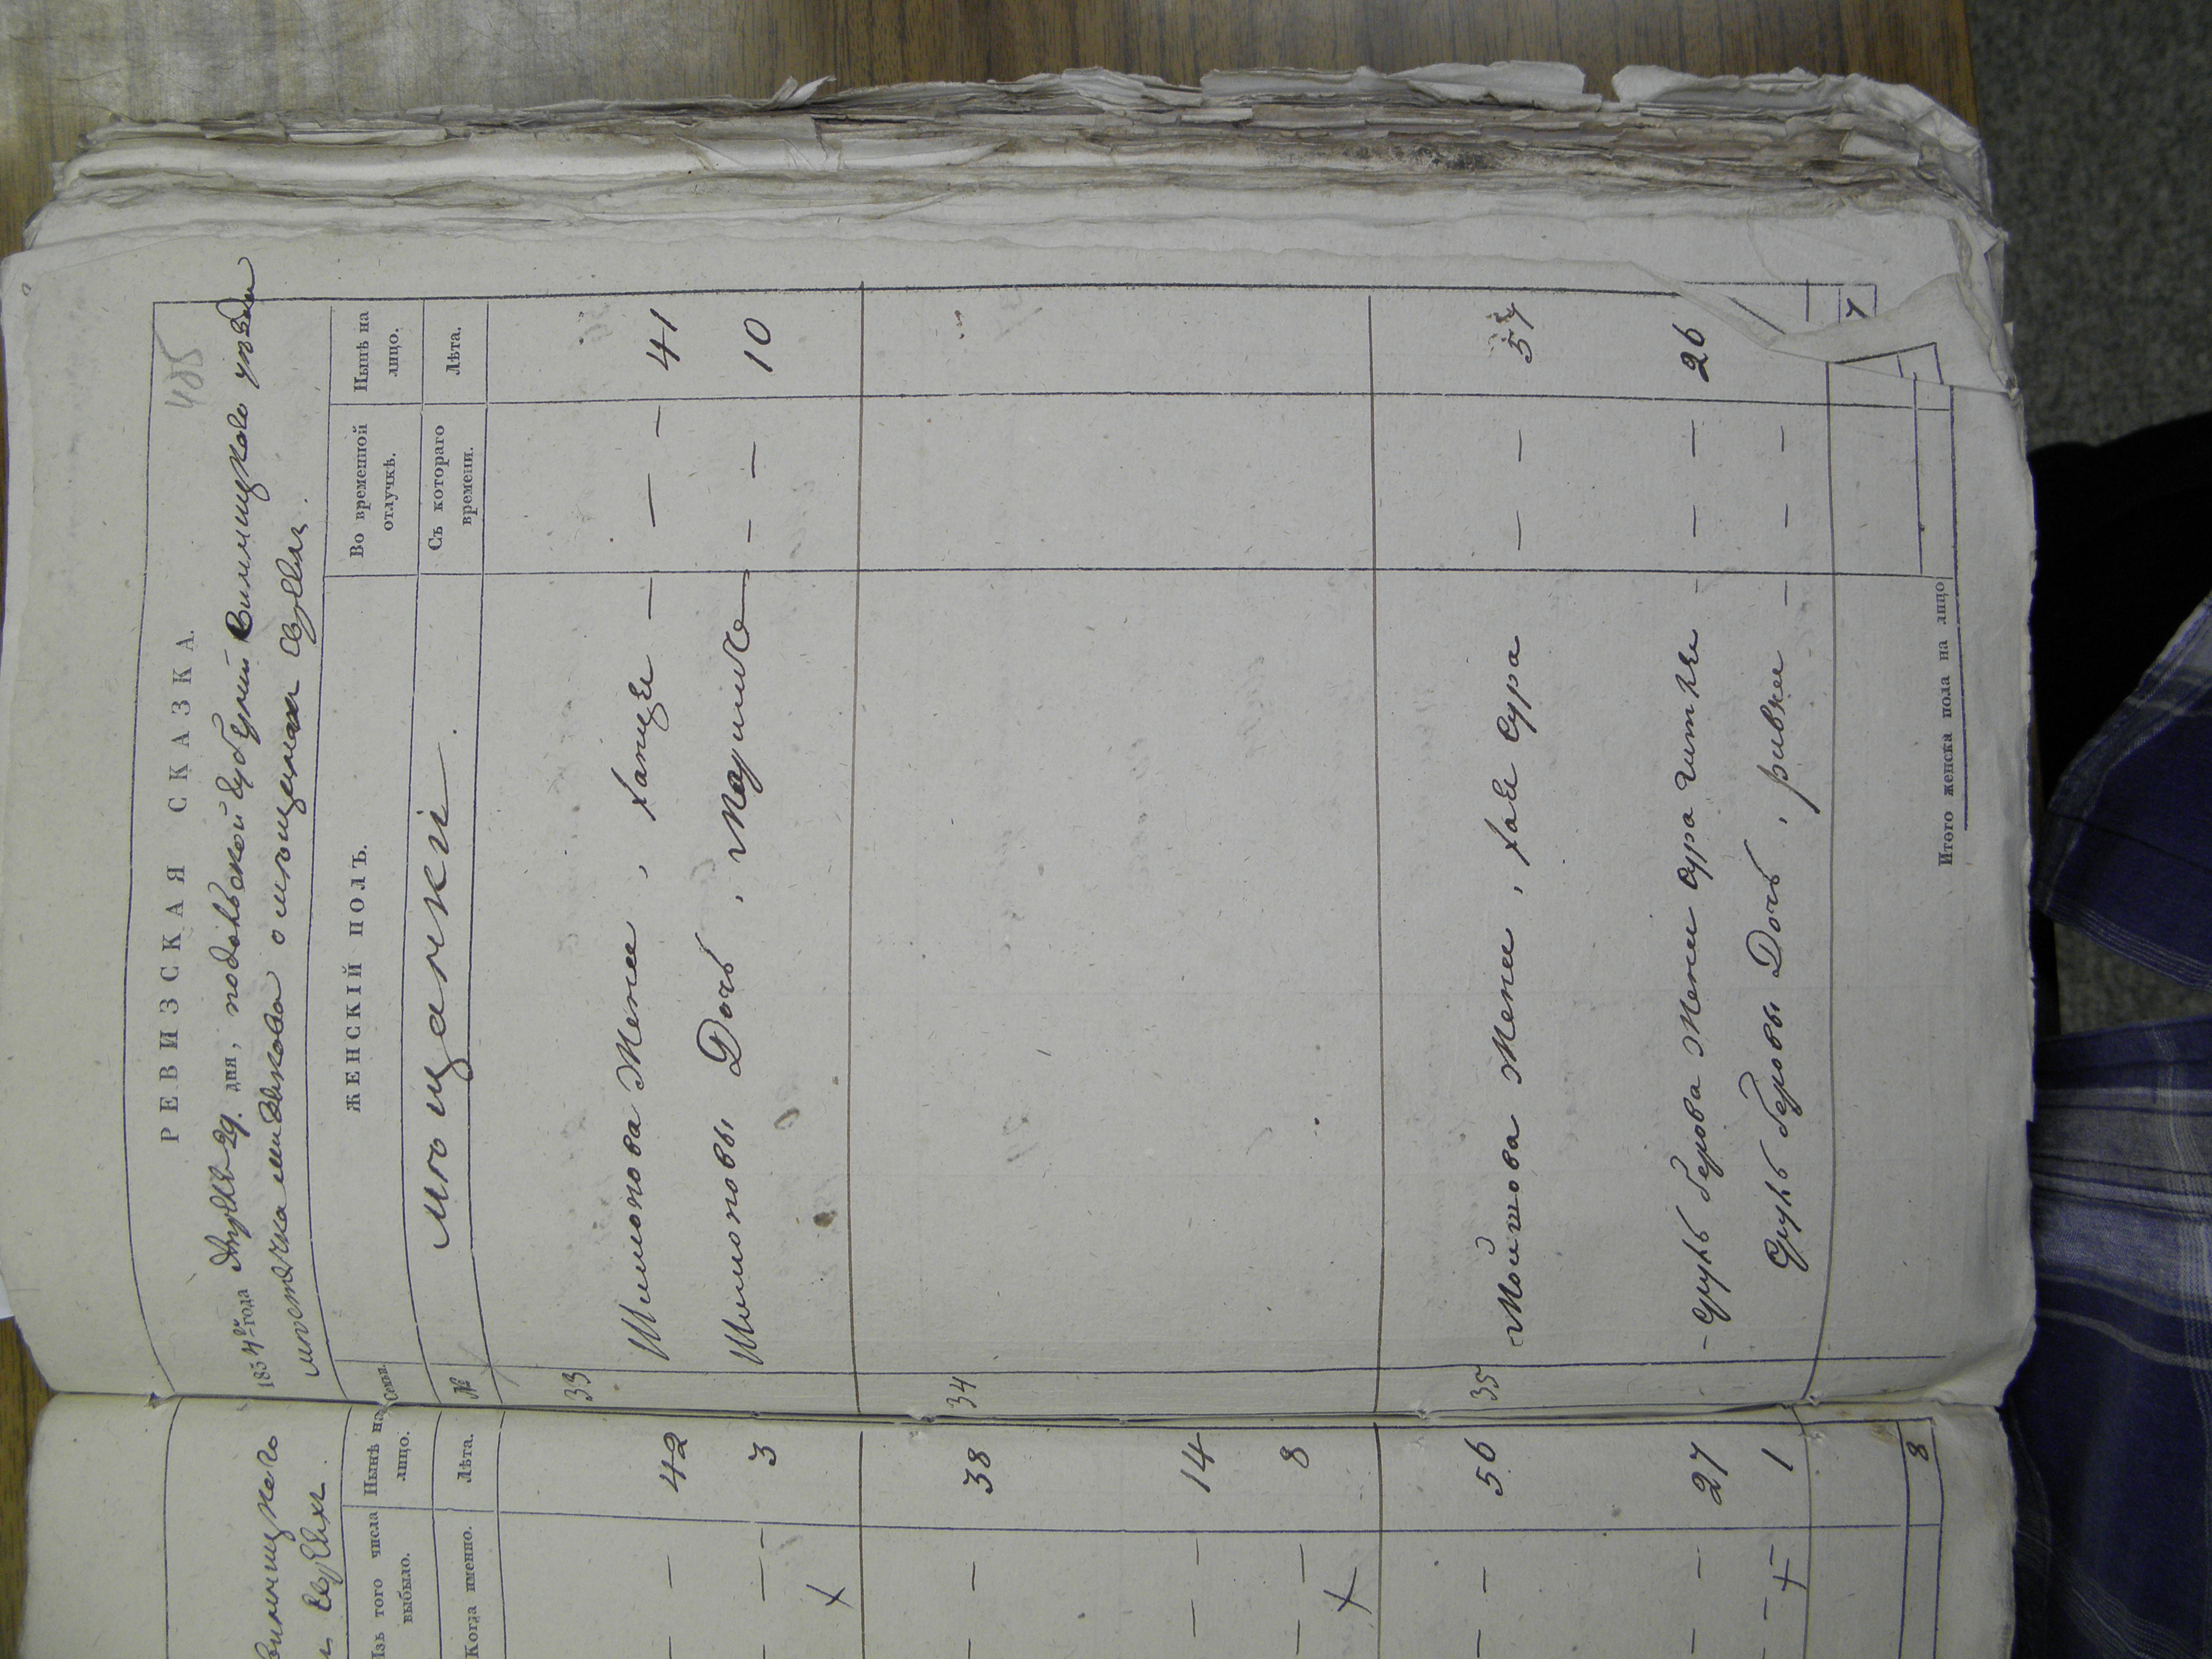 Винницкого
Евреях
Изъ того числа выбыло.
Нынѣ на лицо.
Когда именно.
Лѣта.
42
3
38
14
8
56
27
1
8
485
РЕВИЗСКАЯ СКАЗКА.
1834го года Апрѣля 29. дня, подольской Губернии Винницкого уезда
местечка о мещанах Евреях.
Семьи.
ЖЕНСКІЙ ПОЛЪ.
Во временной отлучкѣ.
Нынѣ на лицо.
№
мещанки.
Съ котораго времени.
Лѣта.
33
Шимонова Жена, ханце — — — 41
Шимоновы Дочь, — — 10
34
35
Мойшова Жена, хае Сура — — 54
Жена Сура гитле — — — 26
Дочь, ривка — — —
7
Итого женска пола на лицо